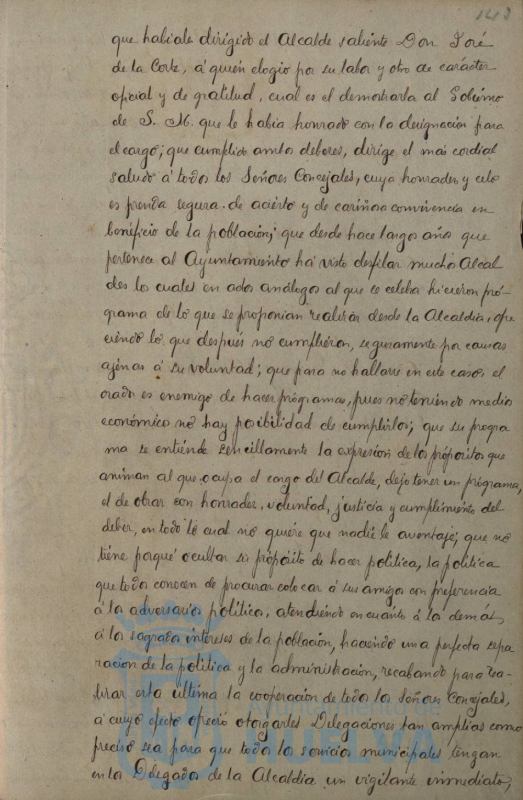 143
que habíale dirigido el Alcalde saliente Don José
de la Corte, á quién elogio por su labor y otro de carácter
oficial y de gratitud, cual es el demostrarla al Gobierno
de S. M. que le había honrado con la designación para
el cargo; que cumplido ambos deberes, dirige el más cordial
saludo á todos los Señores Concejales, cuya honradez y celo
es prenda segura de acierto y de cariñosa convivencia en
beneficio de la población; que desde hace largos años que
pertenece al Ayuntamiento há visto desfilar muchos Alcal
des los cuales en actos análogos al que se celebra hicieron pró-
grama de lo que se proponian realizar desde la Alcaldia, ofre
ciendo lo que después nó cumplieron, seguramente por causas
ajenas á su voluntad; que para no hallarse en este caso, el
orador es enemigo de hacer prógramas, pues nó teniendo medio
económico nó hay posibilidad de cumplirlos; que su progra
ma se entiende sencillamente la expresión de los própósitos que
animan al que ocupa el cargo del Alcalde, dejó tener un prógrama,
el de obrar con honradez, voluntad, justicia y cumplimiento del
deber, en todo lo cual nó quiere que nadie le aventaje; que nó
tiene porqué ocultar su própósito de hacer política, la política
que todos conocen de procurar colocar á sus amigos con preferencia
á los adversarios políticos, atendiendo en cuánto á lo demás,
á los sagrados intereses de la población, haciendo una perfecta sepa
ración de la política y la administración, recabando para rea-
lizar esta última la cooperación de todos los Señores Concejales,
á cuyo efecto ofreció otorgarles Delegaciones tan amplias como
preciso sea para que todos los servicios municipales tengan
en los Delegados de la Alcaldía un vigilante inmediato,
AYUNTAMIENTO DE
HUELVA